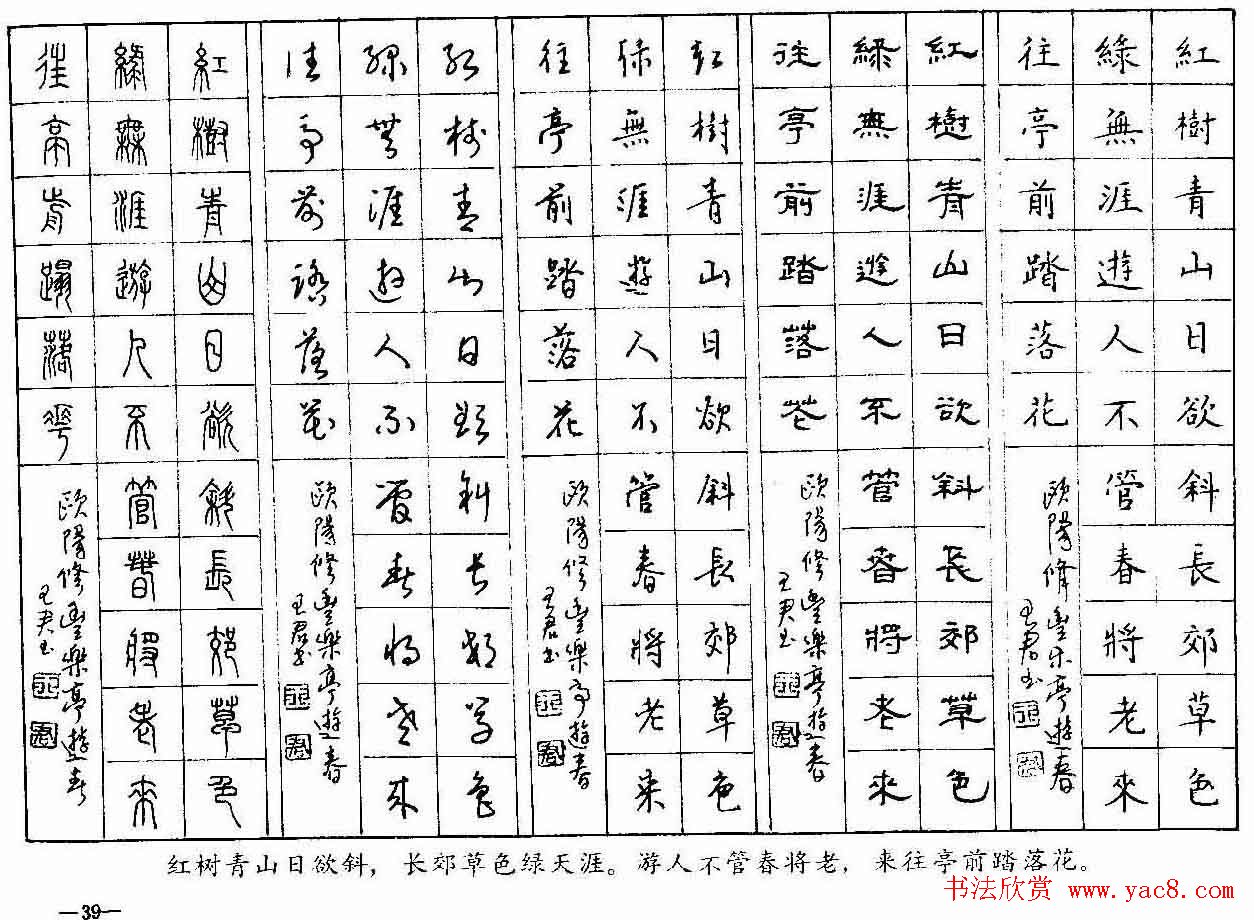 紅樹青山日欲斜長郊草色
綠無涯遊人不管春將老來
往亭前踏落花
歐陽修豐樂亭遊春
王君书
紅樹青山日欲斜長郊草色
綠無涯遊人不管春將老來
往亭前踏落花
歐陽修豐樂亭遊春
王君书
紅樹青山日欲斜長郊草色
綠無涯遊人不管春將老來
往亭前踏落花
歐陽修豐樂亭遊春
王君书
紅樹青山日欲斜長郊草色
綠無涯遊人不管春將老來
往亭前踏落花
歐陽修豐樂亭遊春
王君书
紅樹青山日欲斜長郊草色
綠無涯遊人不管春將老來
往亭前踏落花
歐陽修豐樂亭遊春
王君书
红树青山日欲斜，长郊草色绿天涯。游人不管春将老，来往亭前踏落花。
书法欣赏 www.yac8.com
—39—